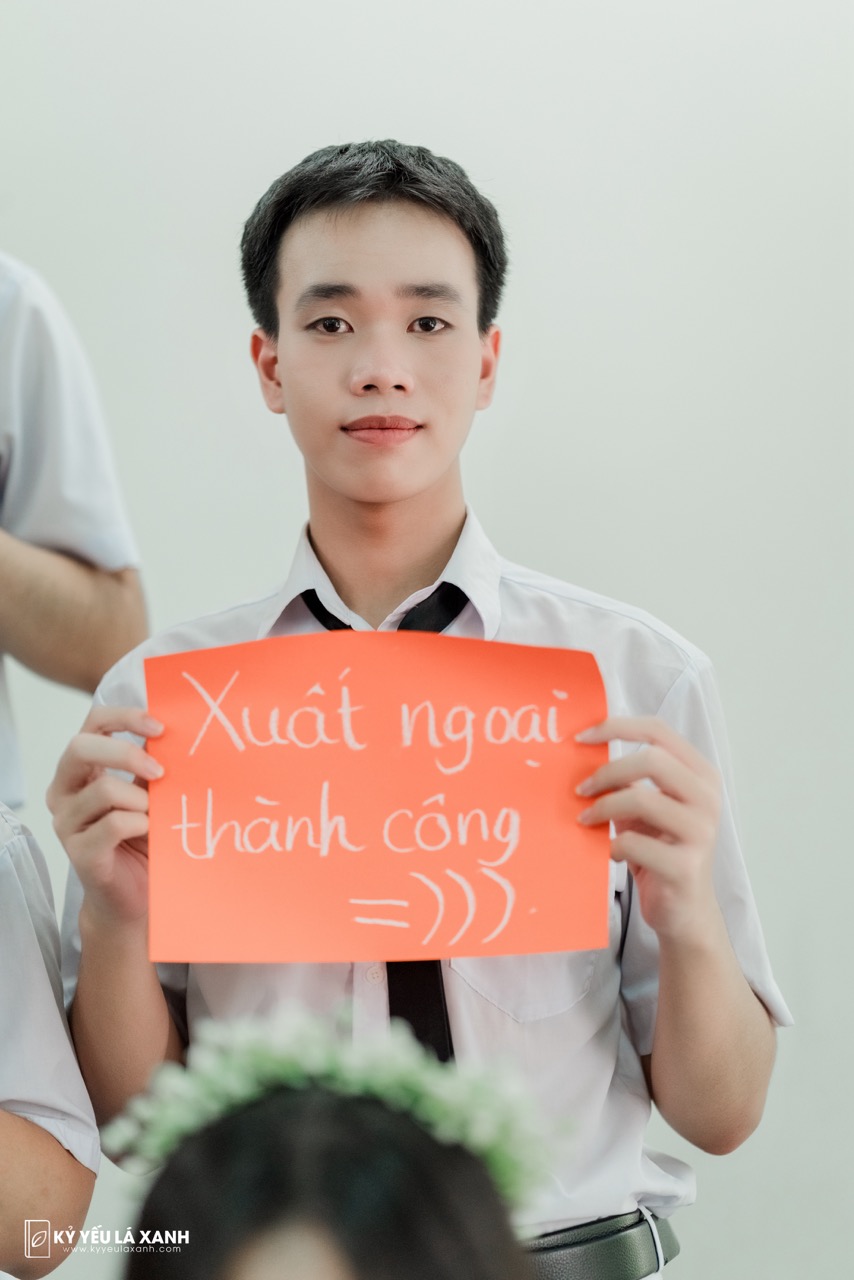 Xuất ngoại
thành công
=))) .
KỶ YẾU LÁ XANH
www.kyyeulaxanh.com